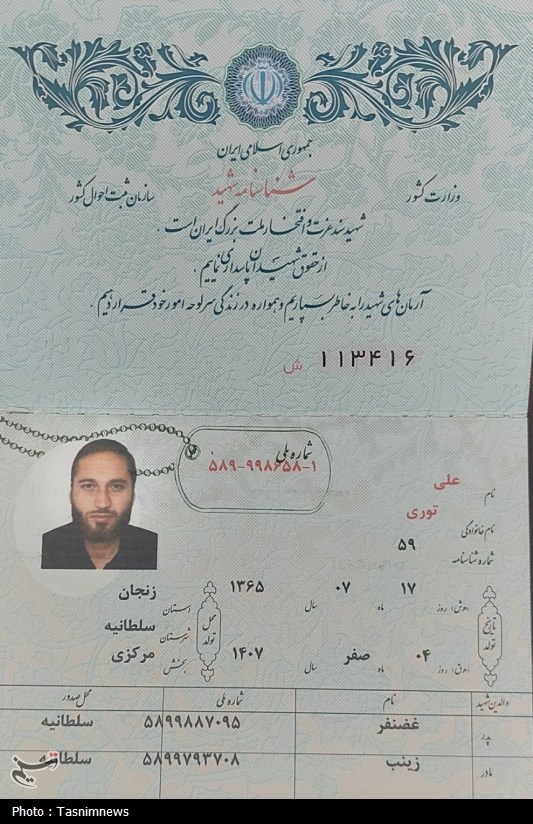 جمهوری اسلامی ایران
وزارت کشور
شناسنامه شهید
سازمان ثبت احوال کشور
شهید سند عزت و افتخار ملت بزرگ ایران است .
از حقوق شهیدان پاسداری نماییم .
آرمان های شهید را به خاطر بسپاریم و همواره در زندگی سرلوحه امور خود قرار دهیم .
ش ۱۱۳۴۱۶
شماره ملی
۵۸۹-۹۹۸۶۵۸-۱
نام علی
نام خانوادگی توری
شماره شناسنامه ۵۹
تاریخ تولد
(ه‍.ش) روز ۱۷ ماه ۰۷ سال ۱۳۶۵
(ه‍.ق) روز ۰۴ ماه صفر سال ۱۴۰۷
محل تولد
استان زنجان
شهرستان سلطانیه
بخش مرکزی
والدین شهید نام شماره ملی محل صدور
پدر غضنفر ۵۸۹۹۸۸۷۰۹۵ سلطانیه
مادر زینب ۵۸۹۹۷۹۳۷۰۸ سلطانیه
تسنیم
Photo : Tasnimnews